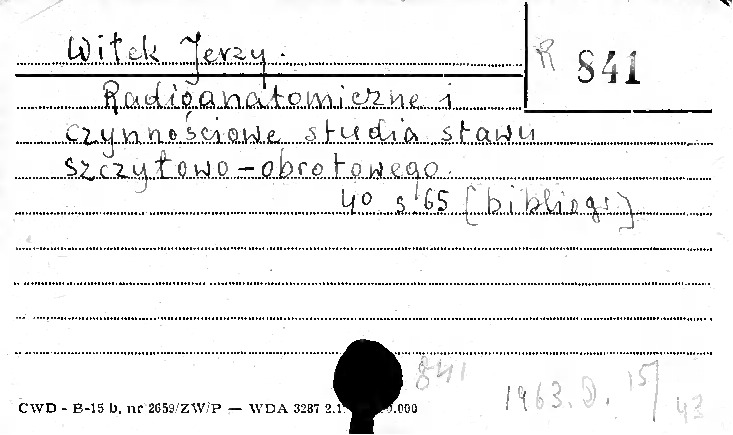 Witek Jerzy.
R 841
Radioanatomiczne i
czynnościowe studia stawu
szczytowo-obrotowego.
4° s 65 [bibliogr]
841
1963.D. 15/43
CWD - B-15 b, nr 2659/ZW/P — WDA 3287 2.1 0.000